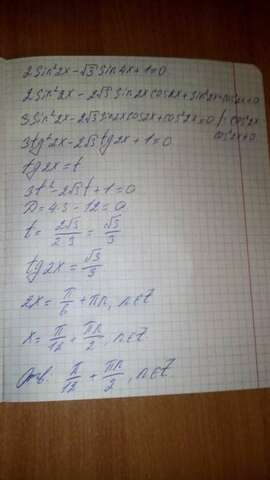 2sin²2x - √3 sin4x + 1 = 0
2sin²2x - 2√3 sin2x cos2x + sin²2x + cos²2x = 0
3sin²2x - 2√3 sin2x cos2x + cos²2x = 0 | : cos²2x
cos2x ≠ 0
3tg²2x - 2√3 tg2x + 1 = 0
tg2x = t
3t² - 2√3 t + 1 = 0
D = 4·3 - 12 = 0
t = 2√3/2·3 = √3/3
tg2x = √3/3
2x = π/6 + πn, n∈Z
x = π/12 + πn/2, n∈Z
Отв. π/12 + πn/2, n∈Z